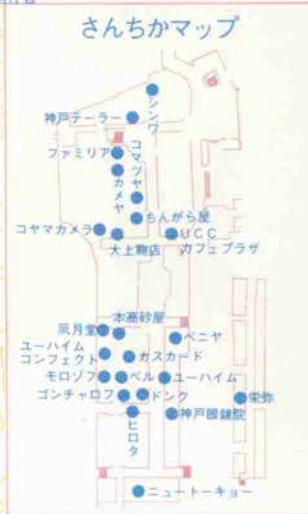 さんちかマップ
シンワ
神戸テーラー
ファミリア
コマツヤ
カメヤ
ちんがら屋
コヤマカメラ
大上鞄店
UCC
カフェプラザ
本高砂屋
風月堂
ベニヤ
ユーハイム
コンフェクト
ガスカード
モロゾフ
ベル
ユーハイム
ゴンチャロフ
ドンク
栄弥
ヒロタ
神戸眼鏡院
ニュートーキョー